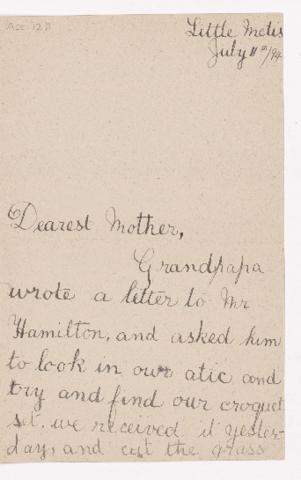 Acc 1271
Little Metis
July 11th/94
Dearest Mother,
Grandpapa
wrote a letter to Mr
Hamilton, and asked him
to look in our atic and
try and find our croquet
set. we received it yester-
day, and cut the grass